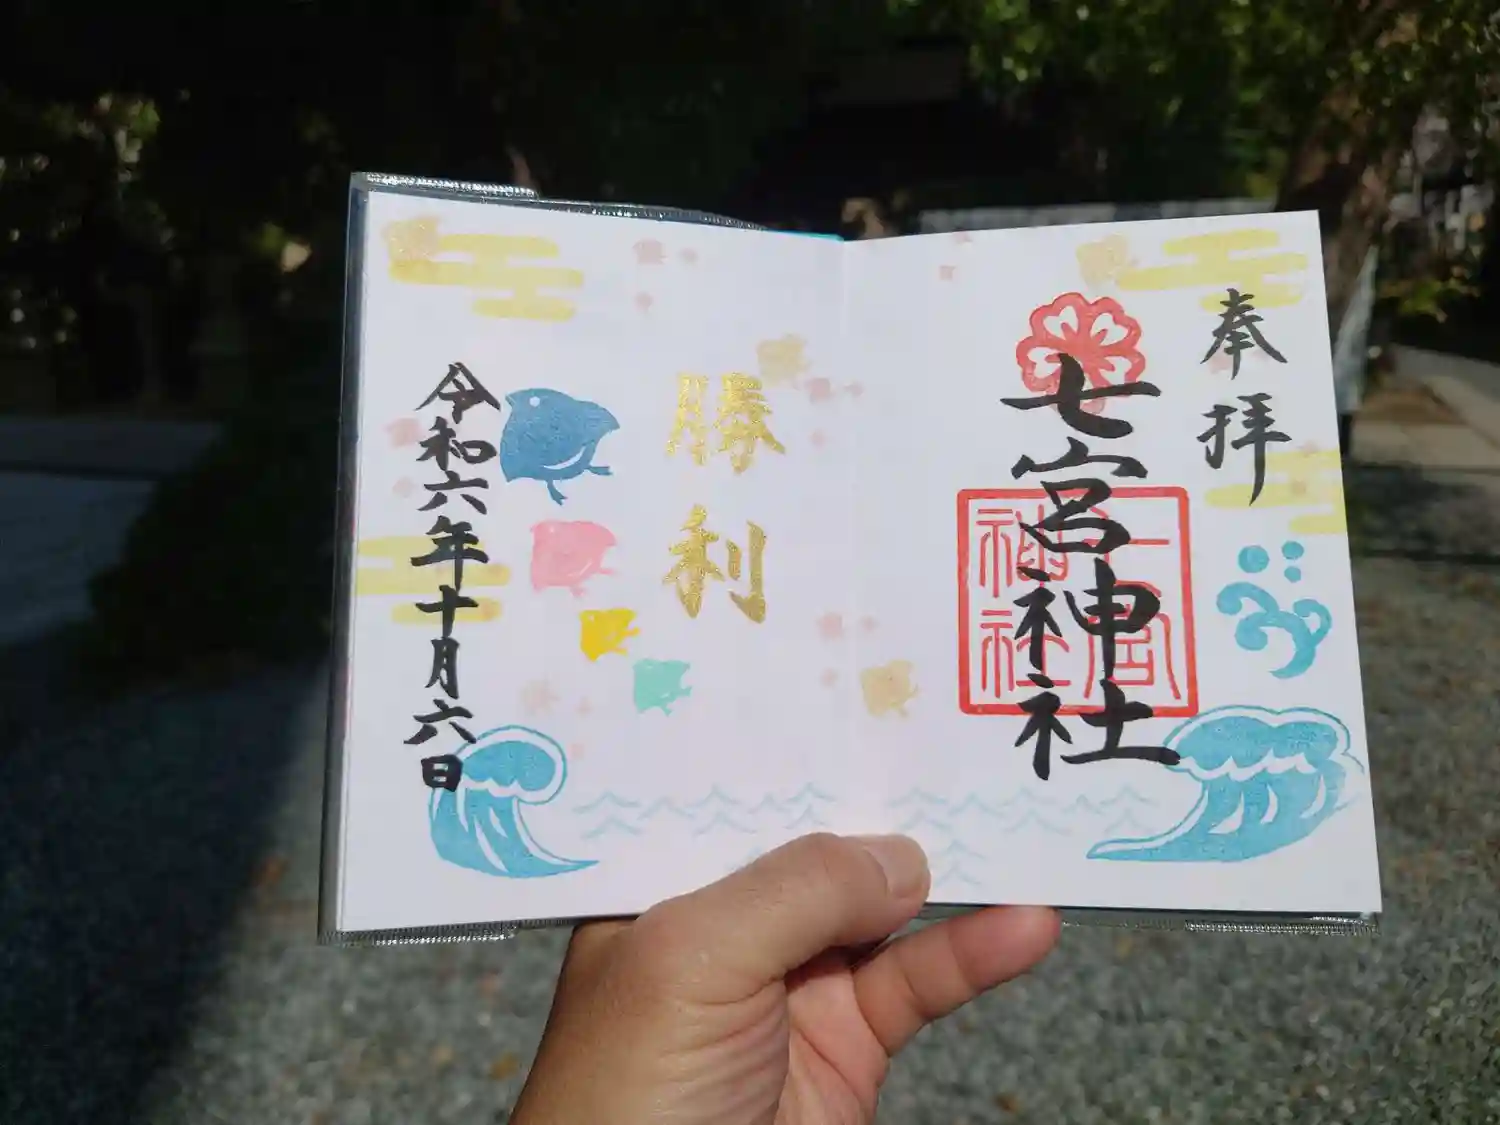 奉拝
七宮神社
七宮神社
勝利
令和六年十月六日